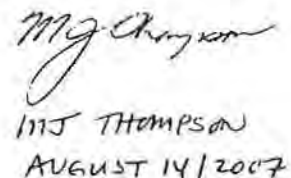 MJ Thompson
MJ THOMPSON
AUGUST 14/2007